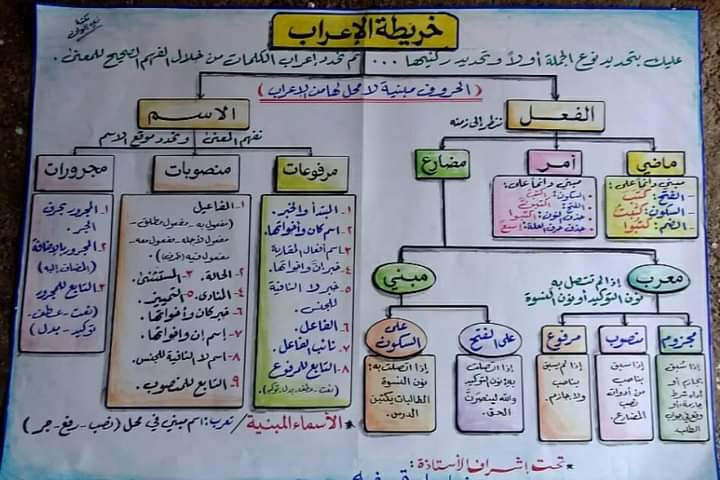 خريطة الإعراب
عليك بتحديد نوع الجملة أولاً وتحديد ركنيها ... ثم تحدد إعراب الكلمات من خلال الفهم الصحيح للمعنى.
(الحروف مبنية لا محل لها من الإعراب)
الفعل
ننظر إلى زمنه
ماضي
مبني دائماً على:
- الفتح: كتبَ
- السكون: كتبْتُ
- الضم: كتبُوا
أمر
مبني دائماً على:
- السكون: اكتبْ
- الفتح:
- حذف النون: اكتبوا
- حذف حرف العلة: اسعَ
مضارع
معرب
إذا لم تتصل به
نون التوكيد أو نون النسوة
مجزوم
إذا سُبق
بجازم أو
أداة شرط
جازمة أو
وقع في جواب
الطلب.
منصوب
إذا سبق
بناصب
من أدوات
نصب
المضارع.
مرفوع
إذا لم يسبق
بناصب
ولا جازم.
مبني
على الفتح
إذا اتصلت
به: نون التوكيد
والله لينصرَنّ
الحق.
على
السكون
إذا اتصلت به:
نون النسوة
الطالبات يكتبْن
الدرس.
الاسم
نفهم المعنى ونحدد موقع الاسم
مرفوعات
١- المبتدأ والخبر.
٢- اسم كان وأخواتها.
٣- اسم أفعال المقاربة
٤- خبر إنّ وأخواتها.
٥- خبر لا النافية
للجنس.
٦- الفاعل.
٧- نائب الفاعل.
٨- التابع للمرفوع
(نعت - عطف - بدل - توكيد).
منصوبات
١- المفاعيل
(مفعول به - مفعول مطلق -
مفعول لأجله - مفعول معه -
مفعول فيه (ظرف))
٢- الحال. ٣- المستثنى.
٤- المنادى. ٥- التمييز.
٦- خبر كان وأخواتها.
٧- اسم إن وأخواتها.
٨- اسم لا النافية للجنس.
٩- التابع للمنصوب.
مجرورات
١- المجرور بحرف
الجر.
٢- المجرور بالإضافة
(المضاف إليه)
٣- التابع للمجرور
(نعت - عطف -
توكيد - بدل)
* الأسماء المبنية / تعرب: اسم مبني في محل (نصب - رفع - جر)
* تحت إشراف الأستاذة: